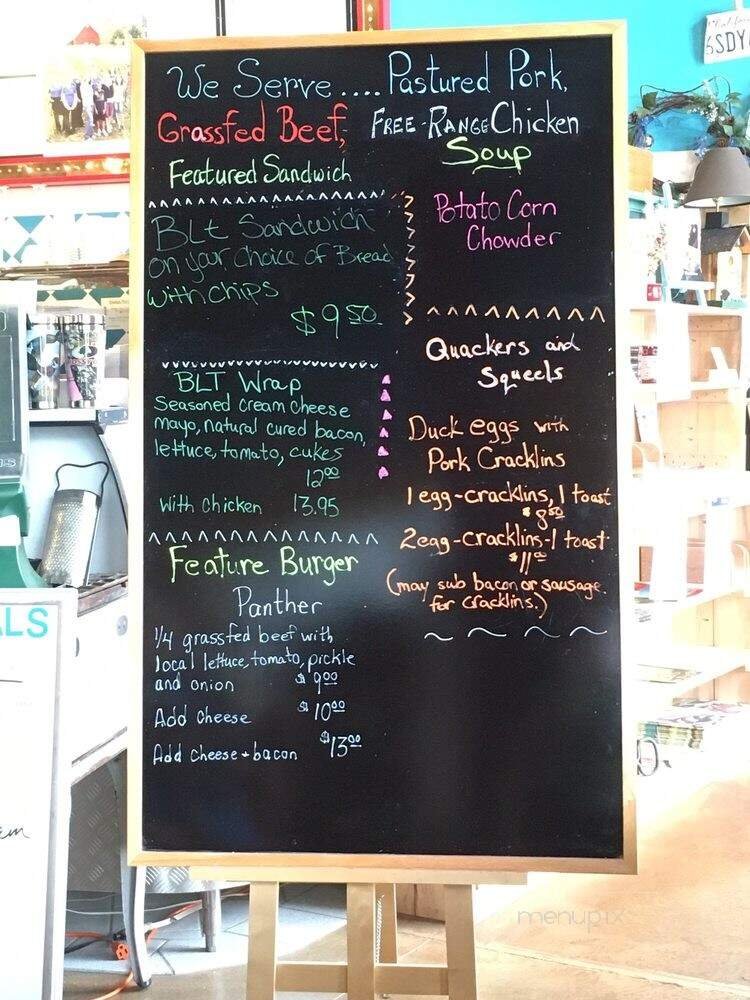 We Serve.... Pastured Pork,
Grassfed Beef, FREE-RANGE Chicken
Featured Sandwich
BLt Sandwich
on your Choice of Bread
with chips
$9.50
BLT Wrap
Seasoned cream cheese
mayo, natural cured bacon,
lettuce, tomato, cukes
12.00
with chicken 13.95
Feature Burger
Panther
1/4 grassfed beef with
local lettuce, tomato, pickle
and onion $9.00
Add cheese $10.00
Add cheese + bacon $13.00
Soup
Potato Corn
Chowder
Quackers and
Squeels
Duck eggs with
Pork Cracklins
1 egg-cracklins, 1 toast
$8.50
2 egg-cracklins-1 toast
(may sub bacon or sausage
for cracklins.)
6SDY
ALS
menupix